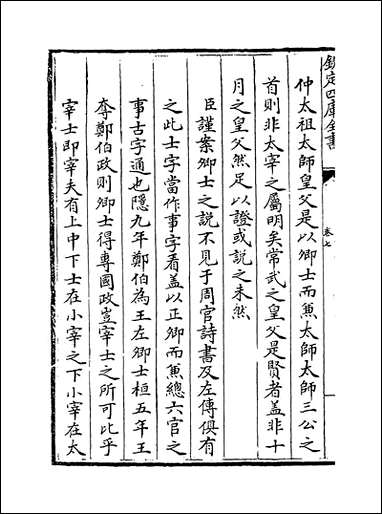 欽定四庫全書
卷七
仲太祖太師皇父是以卿士而兼太師太師三公之
首則非太宰之屬明矣常武之皇父是賢者蓋非十
月之皇父然足以證或說之未然
臣謹案卿士之說不見于周官詩書及左傳俱有
之此士字當作事字看蓋以正卿而兼總六官之
事古字通也隱九年鄭伯為王左卿士桓五年王
奪鄭伯政則卿士得專國政豈宰士之所可比乎
宰士即宰夫有上中下士在小宰之下小宰在太